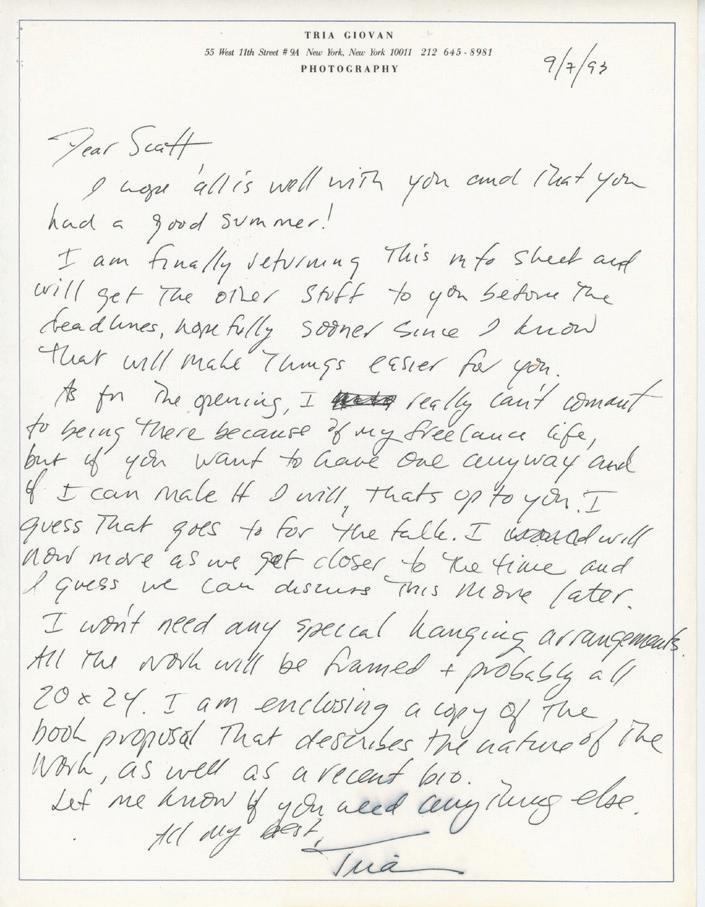 TRIA GIOVAN
55 West 11th Street #9A New York, New York 10011 212 645-8981
PHOTOGRAPHY
9/7/93
Dear Scott
I hope all is well with you and that you
had a good summer!
I am finally returning this info sheet and
will get the other stuff to you before the
deadlines, hopefully sooner since I know
that will make things easier for you.
As for the opening, I really can't commit
to being there because of my freelance life,
but if you want to have one anyway and
if I can make it I will, thats up to you. I
guess that goes to for the talk. I will
now more as we get closer to the time and
I guess we can discuss this more later.
I won't need any special hanging arrangements.
All the work will be framed + probably all
20 x 24. I am enclosing a copy of the
book proposal that describes the nature of the
work, as well as a recent bio.
Let me know if you need anything else.
All my best,
Tria